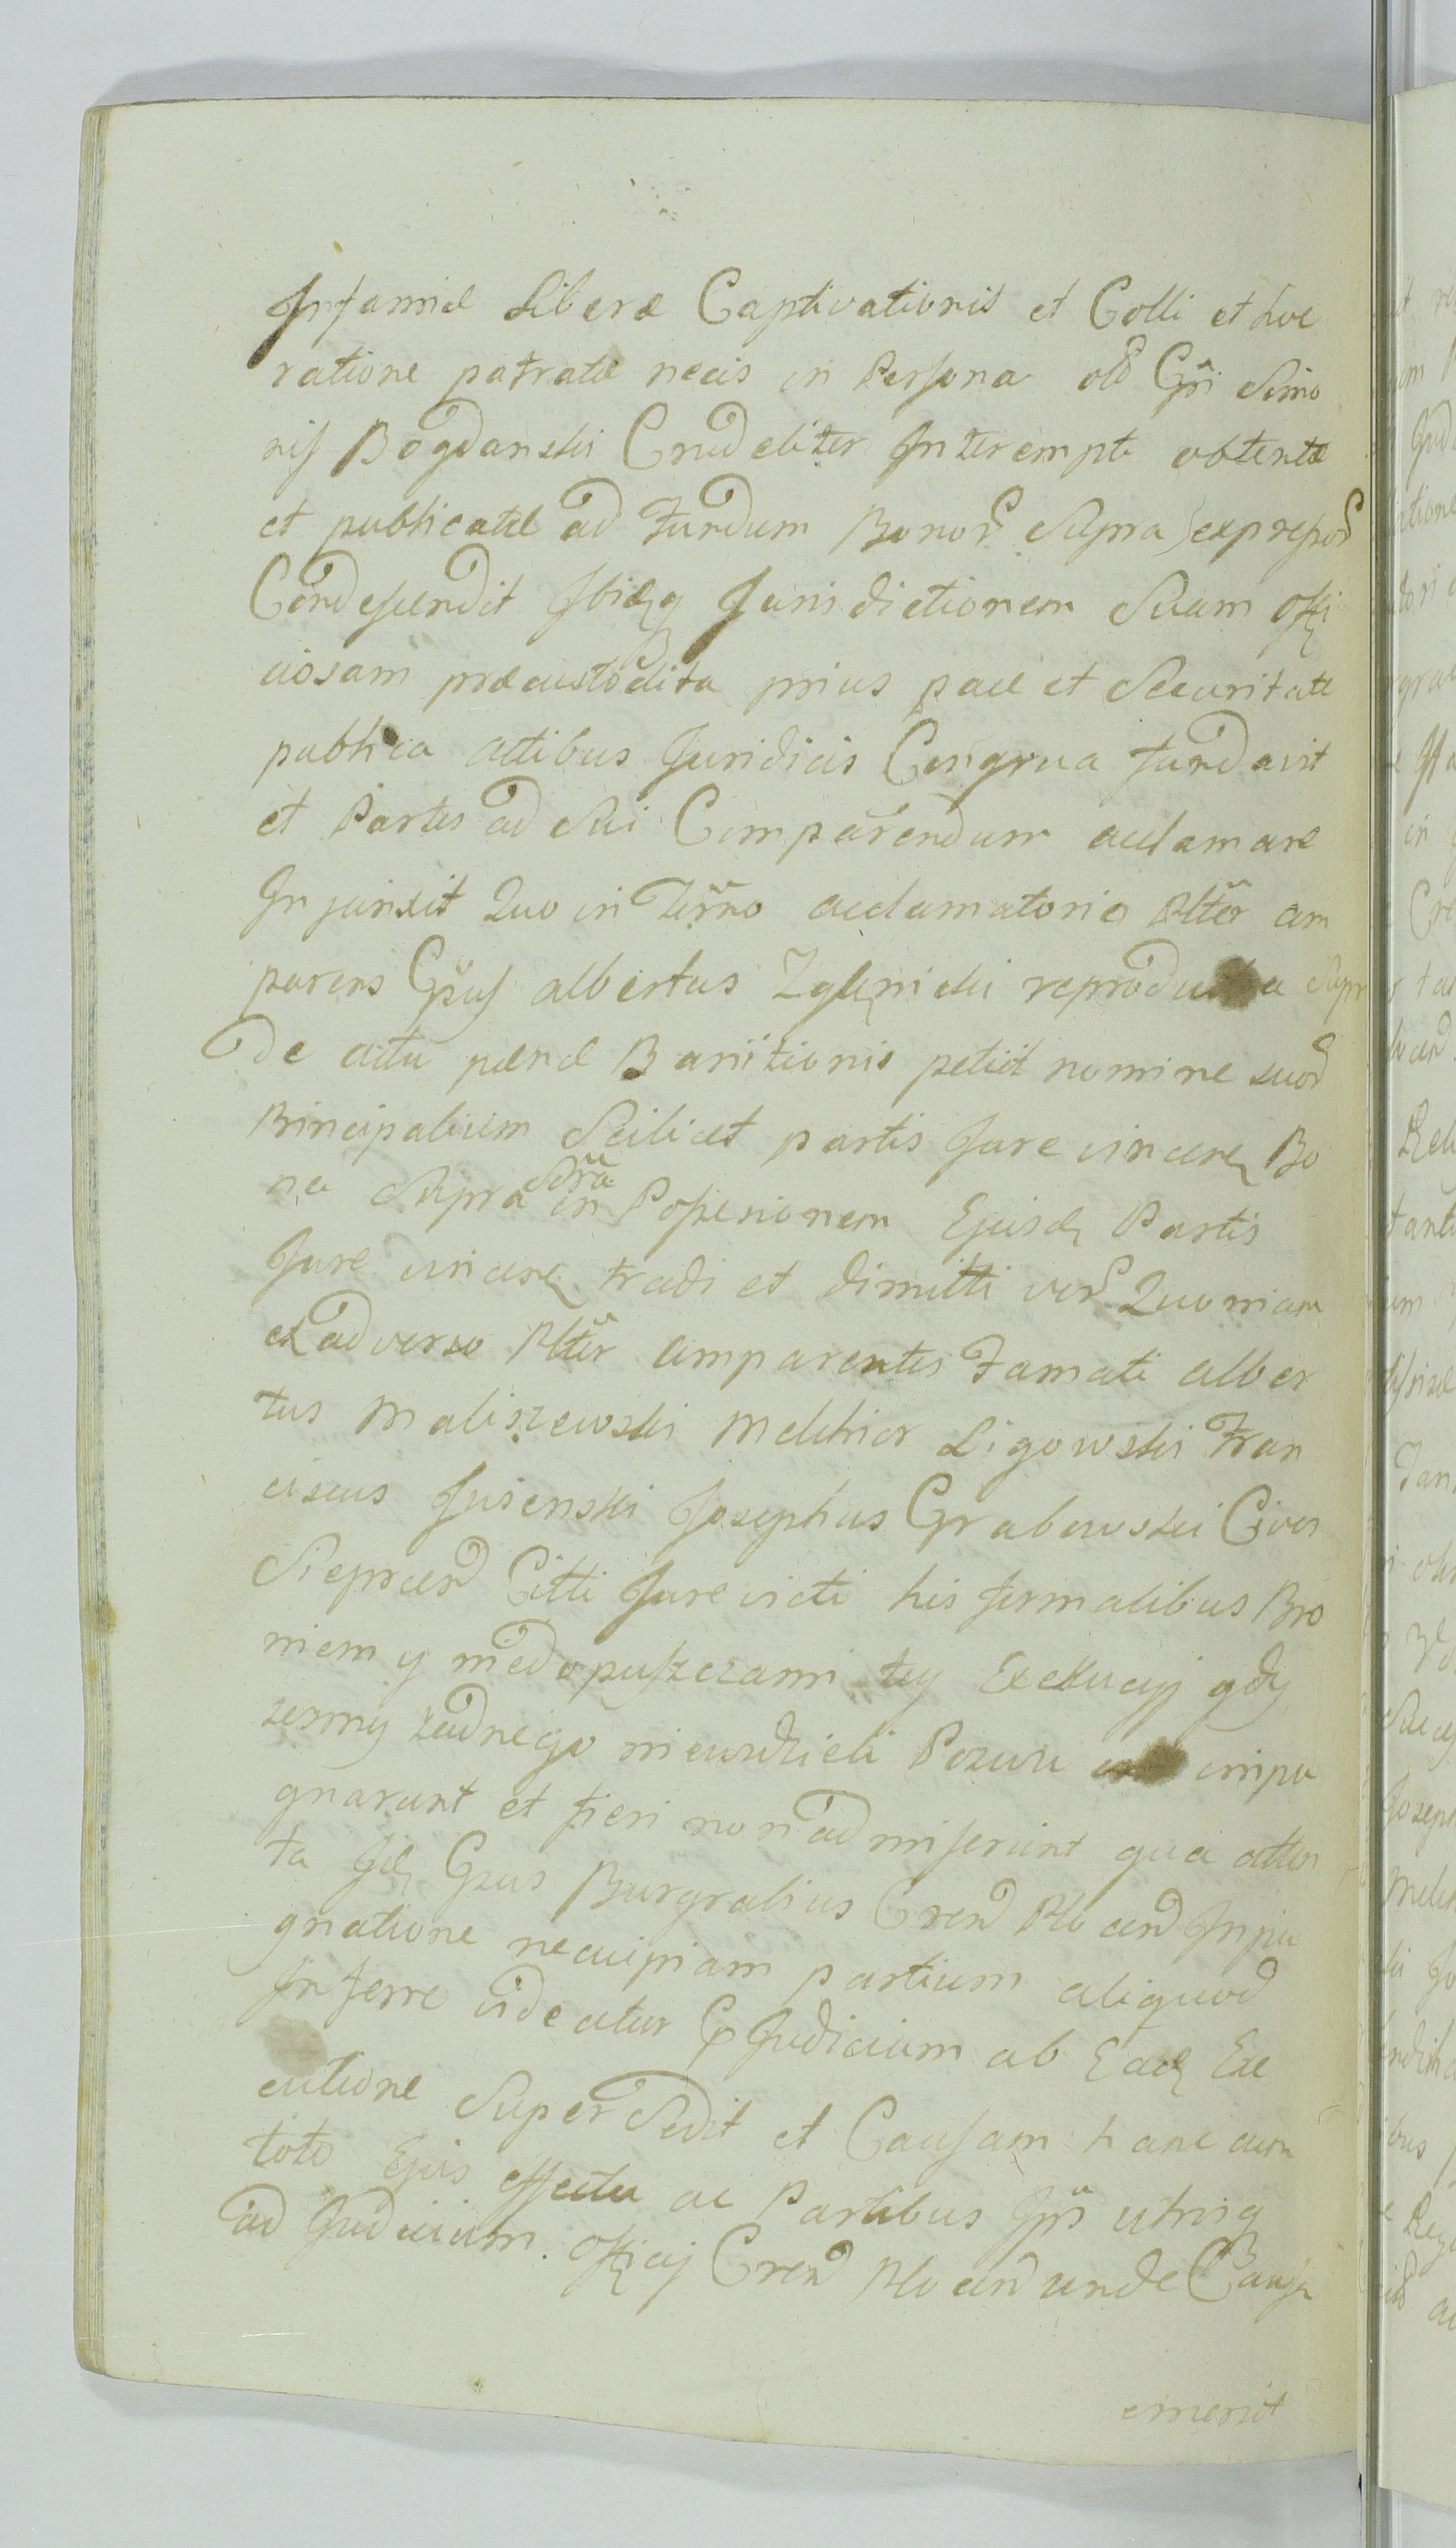 Infamiæ Liberæ Captivationis et Colli et hoc
ratione patratæ necis in Persona olo Gñi Simo
nis Bogdanski Crudeliter Interempti obtentæ
et publicatæ ad Fundum Bonor Supra expressor
Condescendit Ibiq Jurisdictionem Suam offi
ciosam præcustodita prius pace et Securitate
publica actibus Juridicis Congrua fundavit
et Partes ad Sui Comparendum acclamare
Injunxit Quo in Termo acclamatorio Pltēr com
parens Gñsus Albertus Zglenicki reproducta Supr
de actu pœnæ Bannitionis petiit nomine suor
Principalium Scilicet partis Jure vincen Bo
na Supra Scra in Possesionem Ejusd Partis
Jure vincen tradi et dimitti ver Quoniam
ex adverso Pltēr comparentes Famati Alber
tus Maliszewski Melchior Ligowski Fran
ciscus Jusenski Josephus Grabowski Cives
Sieprcen Citti Jure victi his formalibus Bro
niemy niedopuszczami tey Exekucyj gdy
zesmy zadnego niewidzieli Pozwu impu
gnarunt et fieri non admiserunt qua atten
ta Id Gsus Burgrabius Cren Plocen Inpu
gnatione ne cuipiam partium aliquod
Inferre videatur Pjudicium ab Ead Exe
cutione Supersedit et Causam hanc cum
toto Ejus effectu ac Partibus Iñs utrisq
ad Judicium officij Cren Plocen unde Causa
emersit